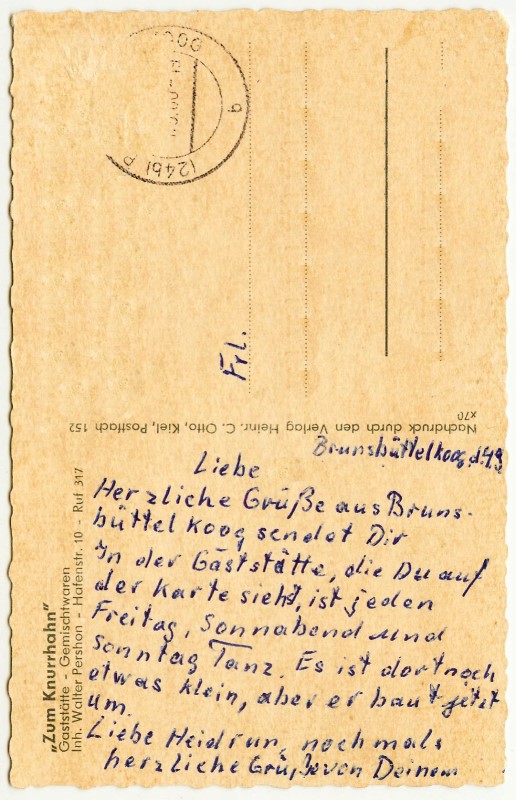 (24b) B
g
Frl.
Nachdruck durch den Verlag Heinr. C. Otto, Kiel, Postfach 152
x70
„Zum Knurrhahn"
Gaststätte - Gemischtwaren
Inh. Walter Pershon - Hafenstr. 10 - Ruf 317
Brunsbüttelkoog, d.
Liebe
Herzliche Grüße aus Bruns-
büttelkoog sendet Dir
In der Gäststätte, die Du auf
der Karte siehst, ist jeden
Freitag, Sonnabend und
Sonntag Tanz. Es ist dort noch
etwas klein, aber er baut jetzt
um.
Liebe Heidrun, nochmals
herzliche Grüße von Deinem